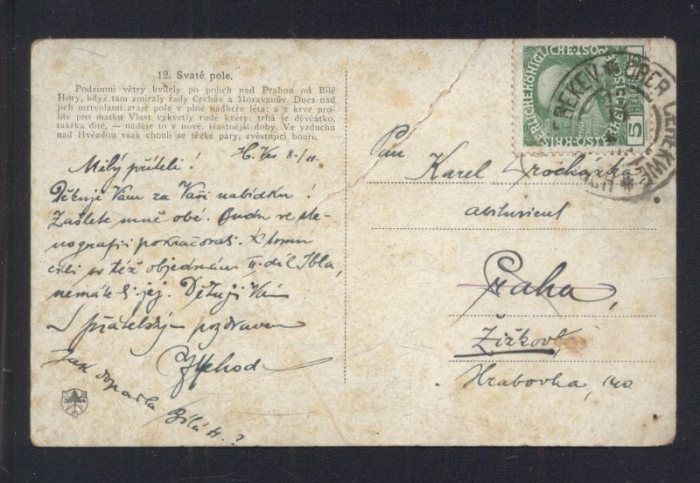 12. Svaté pole.
Podzimní větry kvílely po polích nad Prahou od Bílé
Hory, když tam zmíraly řady Čechův a Moravanův. Dnes nad
jich mrtvolami zraje pole v plné nádheře léta; a z krve pro-
lité pro matku Vlast vykvetly rudé květy; trhá je děvčátko,
takřka dítě, — naděje to v nové, šťastnější doby. Ve vzduchu
nad Hvězdou však chouli se těžké páry, zvěstující bouři.
8./11.
Milý příteli!
Děkuji Vám za Vaši nabídku!
Zašlete mně obě. Budu ve ste-
nografii pokračovati. K tomu
cíli si též objednám II. díl
nemáte-li jej. Děkuji Vám
S přátelským pozdravem
Jak dopadla
Bílá H.?
Pan
Karel
abiturient
Praha,
Žižkov
Hrabovka, 140
5